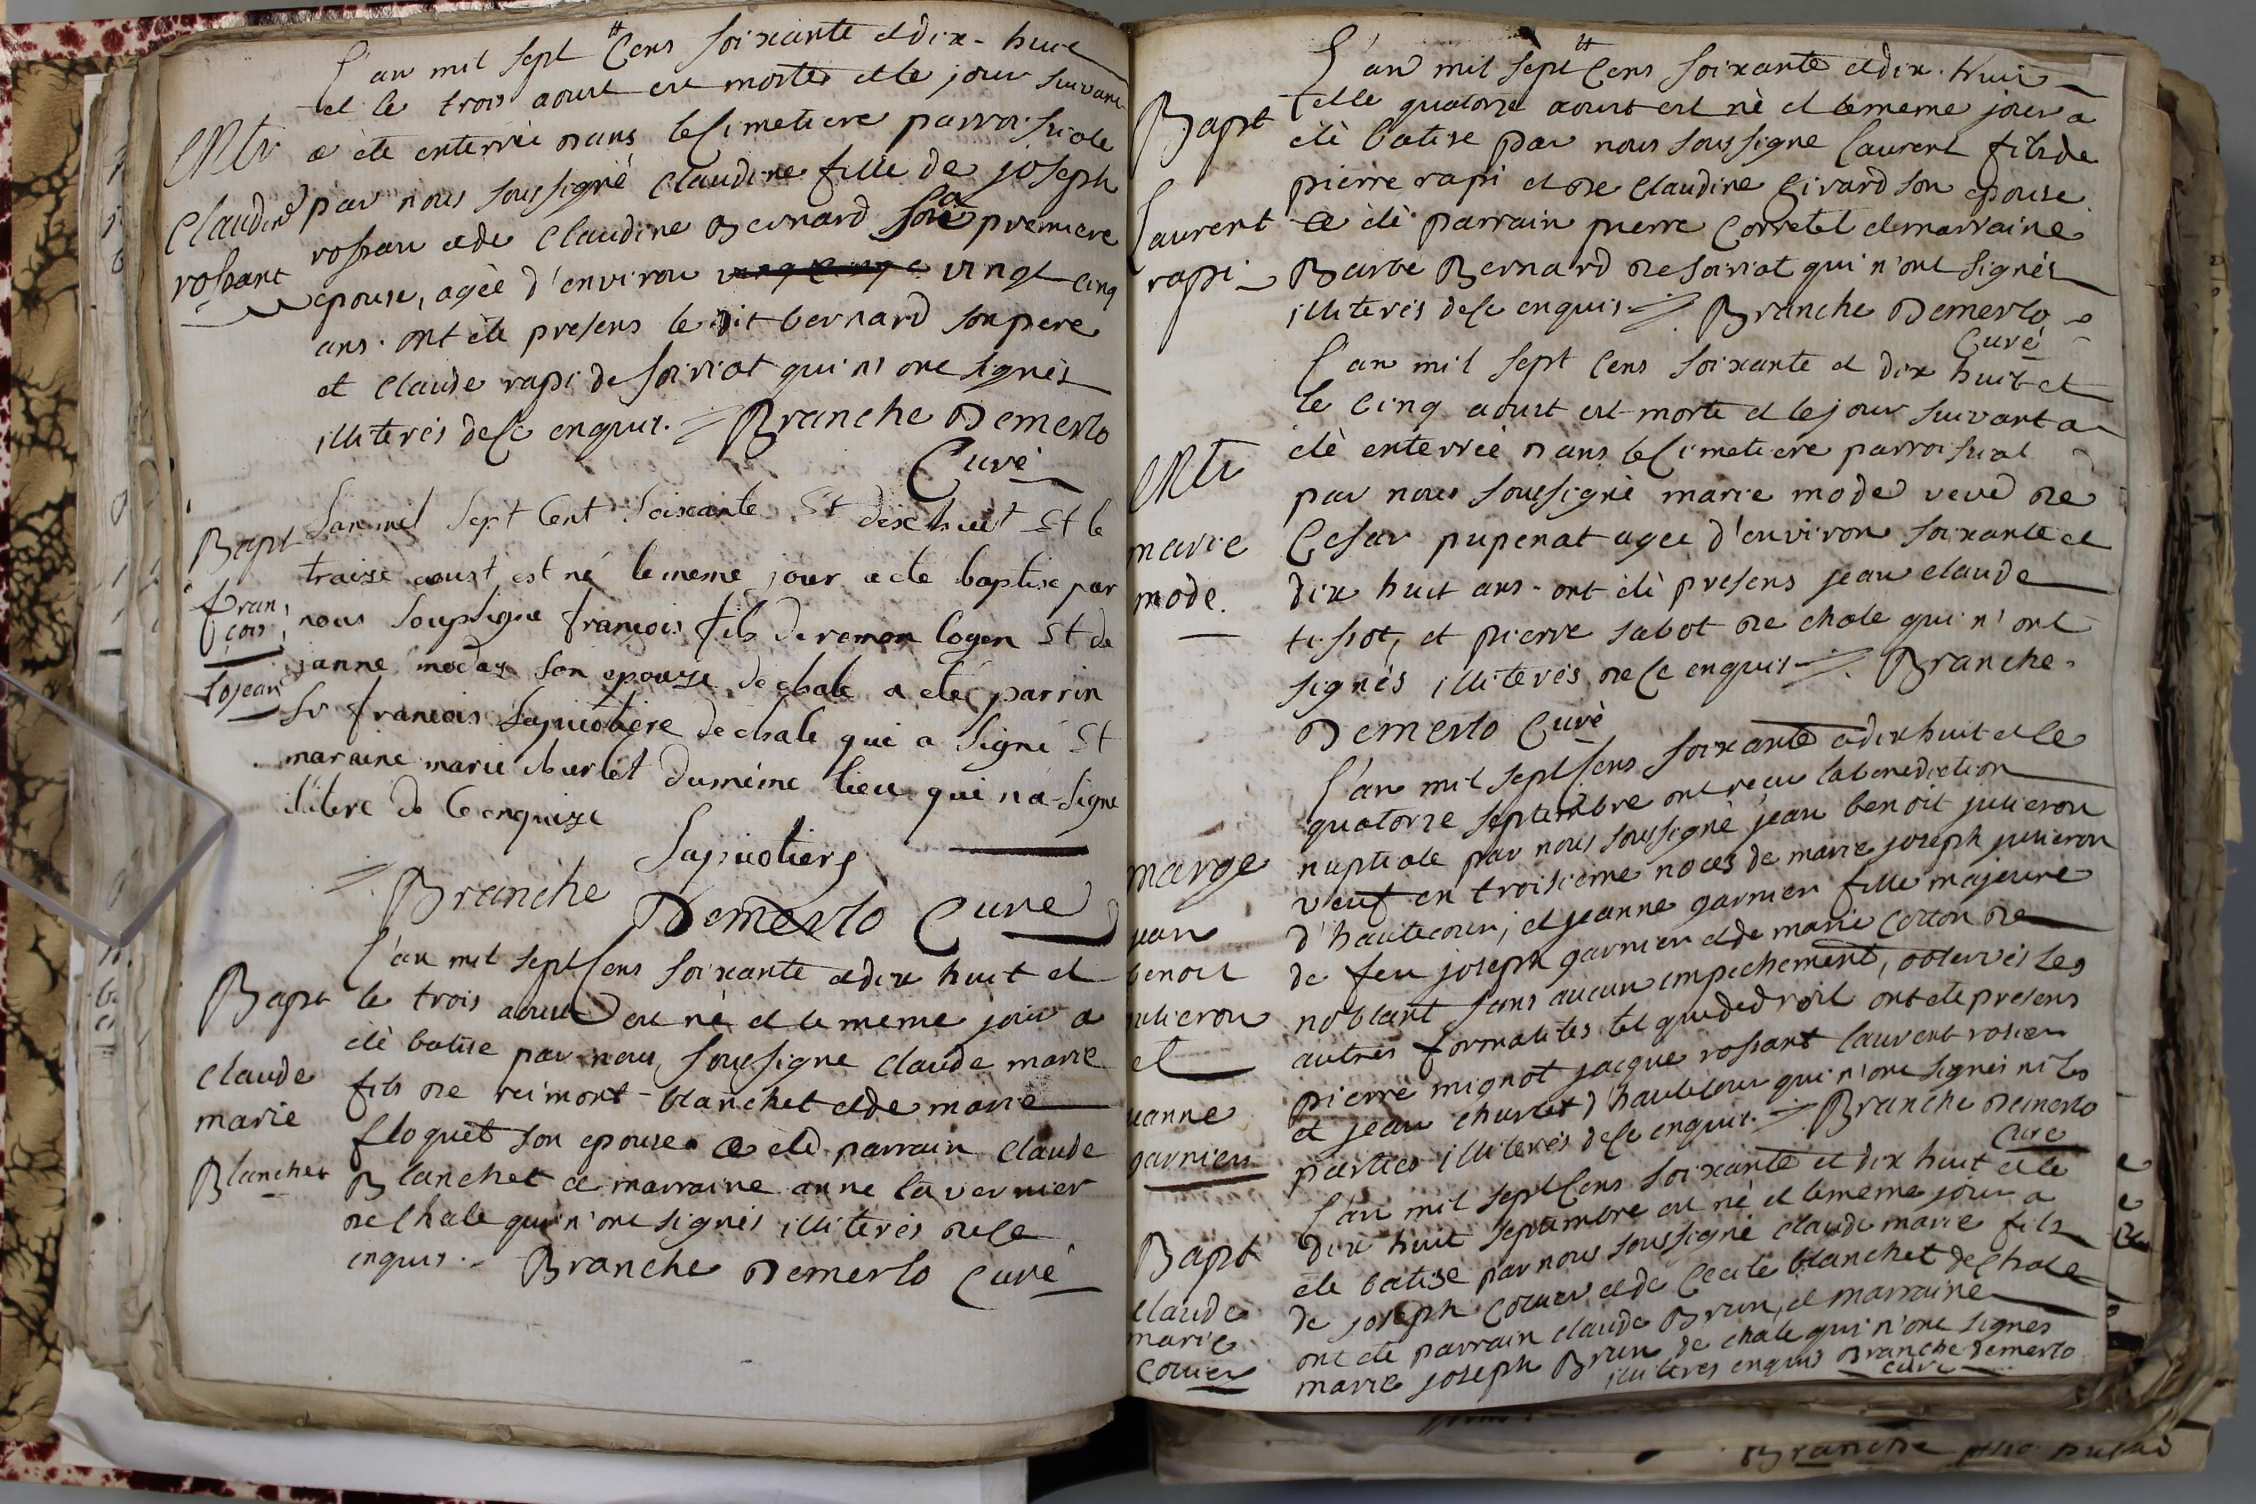 L'an mil sept Cens soixante et dix-huit
et le trois aoust est morte et le jour suivant
Ntr a été enterrée dans le Cimetiere parroissiale
Claudine par nous soussigné Claudine fille de joseph
rossant rossan et de Claudine Bernard sa premiere
epouse, agée d'environ vingt cinq
ans. ont été presens le dit bernard son pere
et Claude rapi de soiriat qui n'ont signés
illiterés de ce enquis. Branche Demerlo
Curé
Bapt Lan mil sept Cent soixante Et dix huit Et le
traize aoust est né le meme jour a ete baptise par
fran,
çois, nous soupsigne françois fils de remon logen Et de
losean janne moday son epouze de chale a eté parrin
Sr françois Lapicotiere de chale qui a signé Et
maraine marie churlet du méme lieu qui n'a signe
ilitere de Ce enquize
Lapicotiere
Branche
Demerlo Curé
L'an mil sept Cens soixante et dix huit et
Bapt le trois aoust est né et le meme jour a
été batise par nous soussigne Claude marie
Claude
marie fils de reimont blanchet et de marie
floquet son epouse a été parrain Claude
Blanchet Blanchet et marraine anne lavernier
de Chale qui n'ont signés illiterés de ce
enquis. Branche Demerlo Curé
L'an mil sept Cens soixante et dix huit
Bapt et le quatorze aoust est né et le meme jour a
été batise par nous soussigne Laurent fils de
pierre rapi et de Claudine Girard son epouse
Laurent a été parrain pierre Corretel et marraine
rapi Barbe Bernard de soiriat qui n'ont signés
illiterés de ce enquis Branche Demerlo
Curé
L'an mil sept Cens soixante et dix huit et
le Cinq aoust est morte et le jour suivant a
Ntr été enterrée dans le Cimetiere parroissial
par nous soussigné marie mode veve de
marie Cesar pupenat agee d'environ soixante et
mode. dix huit ans. ont été presens jean claude
tissot, et pierre sabot de chale qui n'ont
signés illiterés de ce enquis Branche
Demerlo Curé
L'an mil sept Cens soixante et dix huit et le
quatorze septembre ont reçu la benediction
marge nuptiale par nous soussigné jean benoit julieron
veuf en troisieme noces de marie joseph julieron
jean d'hautecour, et jeanne garnier fille majeure
benoit de feu joseph garnier et de marie Cotton de
julieron noblant sans aucun empechement, observés les
et autres formalités tel que de droit ont été presens
pierre mignot jacque rossant laurent rosier
janne et jean churlet d'hautecour qui n'ont signés ni les
garnier parties illiterés de ce enquis. Branche Demerlo
Curé
L'an mil sept Cens soixante et dix huit et le
dix huit septembre est né et le meme jour a
Bapt été batize par nous soussigné claude marie fils
claude de joseph Cottier et de Cecile blanchet de Chale
marie ont été parrain claude Brun, et marraine
Cottier marie joseph Brun de chale qui n'ont signés
illiteres enquis Branche Demerlo
Curé